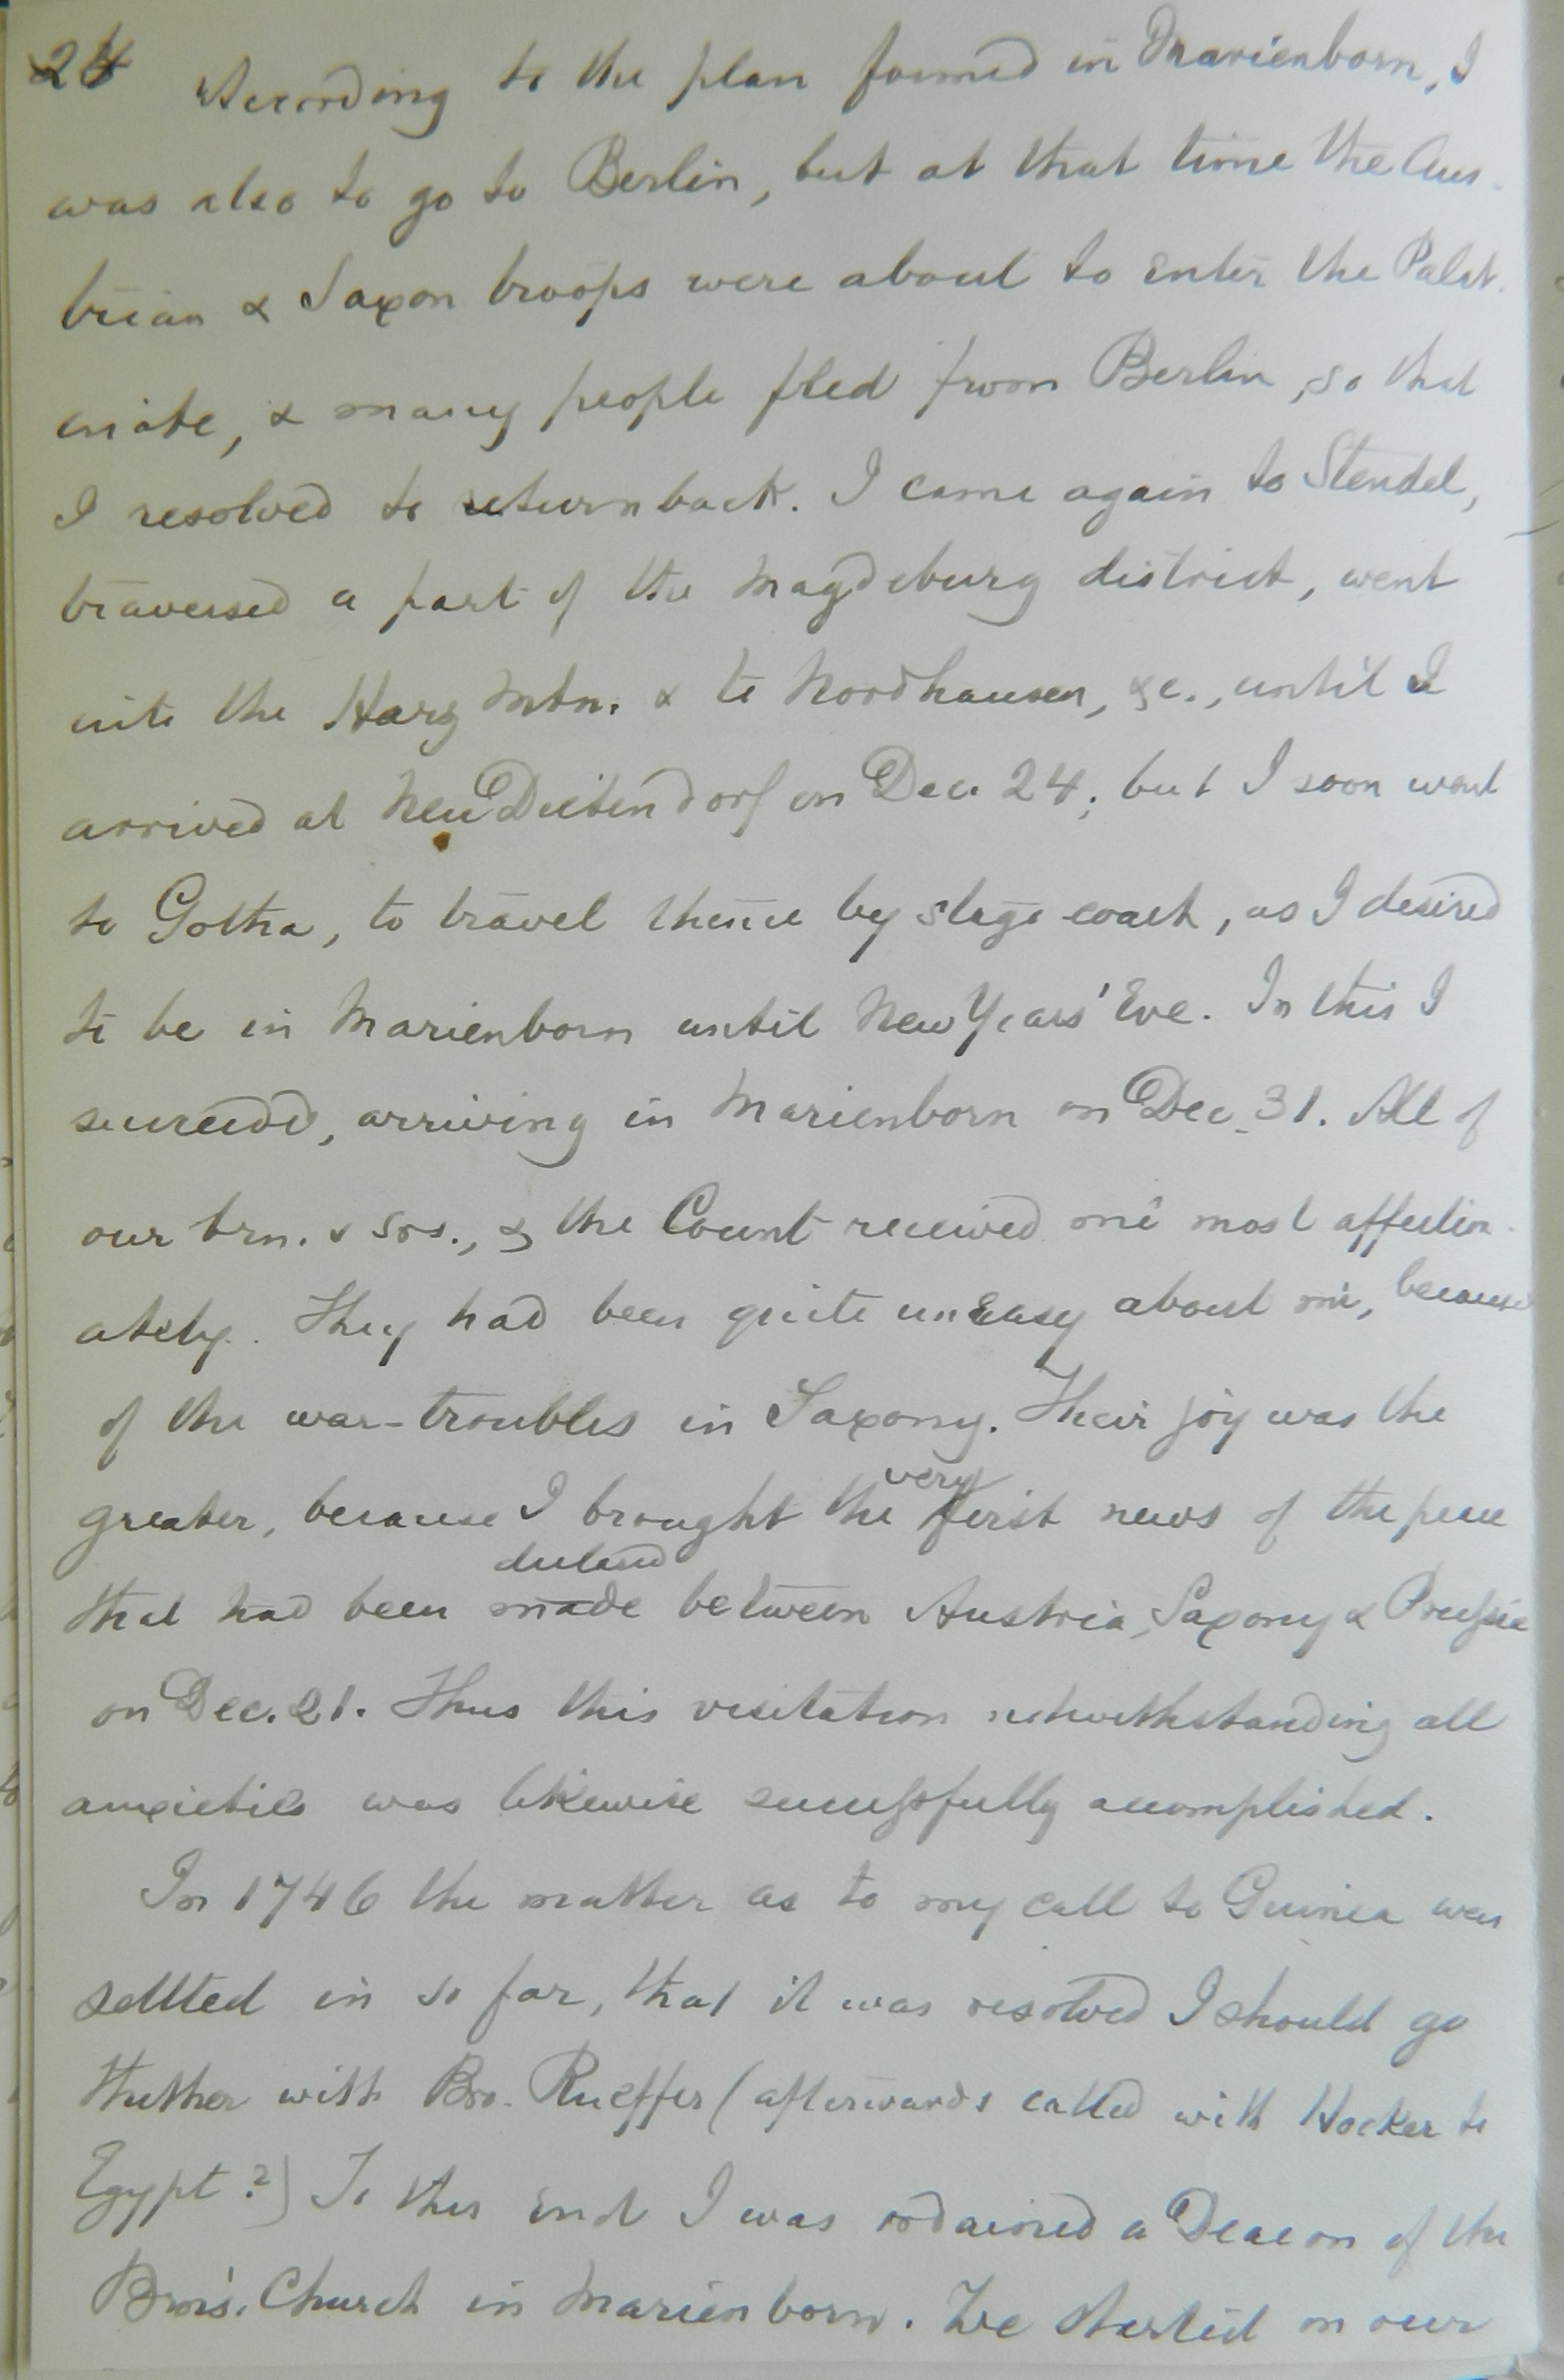 24 According to the plan formed in Marienborn, I
was also to go to Berlin, but at that time the Aus-
trian & Saxon troops were about to enter the Palat-
inate, & many people fled from Berlin, so that
I resolved to return back. I came again to Stendel,
traversed a part of the Magdeburg district, went
into the Harz Mtn. & to Nordhausen, &c., until I
arrived at Neu Dietendorf on Dec. 24; but I soon went
to Gotha, to travel thence by stage coach, as I desired
to be in Marienborn until New Years' Eve. In this I
succeeded, arriving in Marienborn on Dec. 31. All of
our brn. & srs., & the Count received me most affection-
ately. They had been quite uneasy about me, because
of the war-troubles in Saxony. Their joy was the
greater, because I brought the very first news of the peace
that had been made declared between Austria, Saxony & Prussia
on Dec. 21. Thus this visitation notwithstanding all
anxieties was likewise successfully accomplished.
In 1746 the matter as to my call to Guinea was
settled in so far, that it was resolved I should go
thither with Bro. Rueffer (afterwards called with Hocker to
Egypt?) To this end I was ordained a Deacon of the
Brn's. Church in Marienborn. We started on our